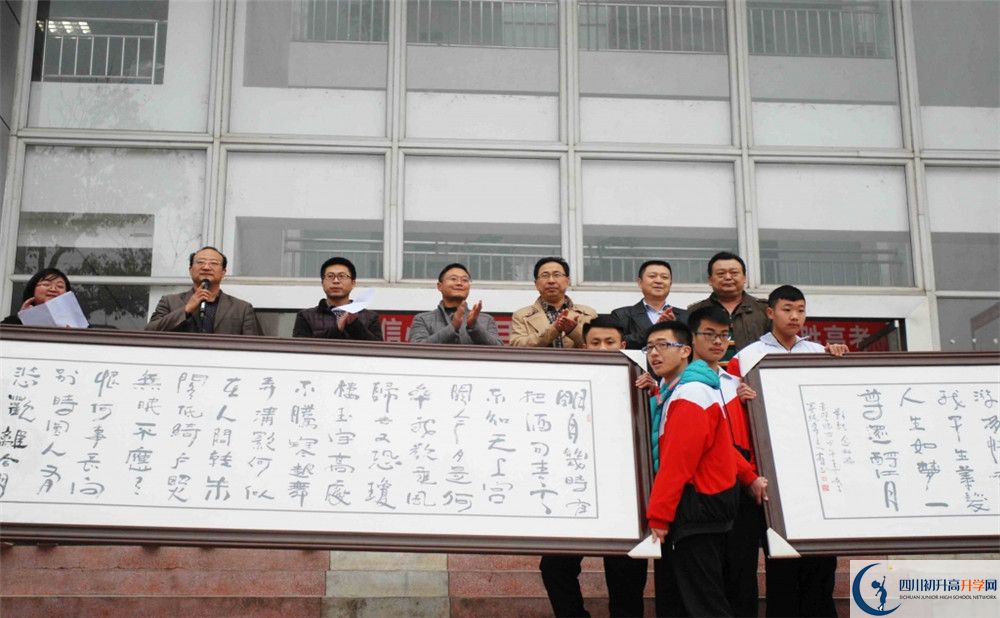 明月幾時有
把酒問青天
不知天上宮
闕今夕是何
年我欲乘風
歸去又恐瓊
樓玉宇高處
不勝寒起舞
弄清影何似
在人間轉朱
閣低綺戶照
無眠不應有
恨何事長向
别時圓人有
悲歡離合月
我早生華髮
人生如夢一
尊還酹江月
信
胜高考
四川初升高升学网
SICHUAN JUNIOR HIGH SCHOOL NETWORK